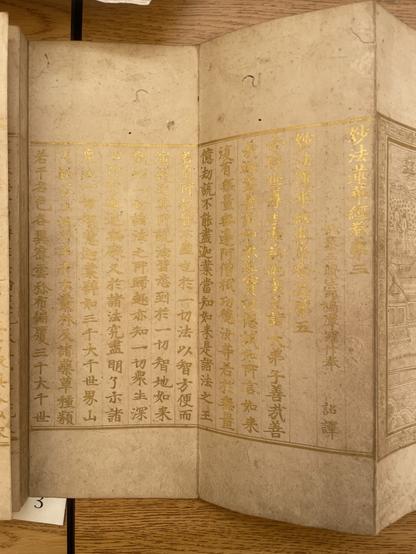 妙法蓮華經卷第三
姚秦三藏法師鳩摩羅什奉 詔譯
妙法蓮華經藥草喻品第五
尒時世尊告摩訶迦葉及諸大弟子善哉善
哉迦葉善說如來真實功德誠如所言如來
復有無量無邊阿僧祇功德汝等若於無量
億劫說不能盡迦葉當知如來是諸法之王
若有所說皆不虛也於一切法以智方便而
演說之其所說法皆悉到於一切智地如來
觀知一切諸法之所歸趣亦知一切衆生深
心所行通達無礙又於諸法究盡明了示諸
衆生一切智慧迦葉譬如三千大千世界山
川谿谷土地所生卉木叢林及諸藥草種類
若干名色各異密雲弥布徧覆三千大千世
3